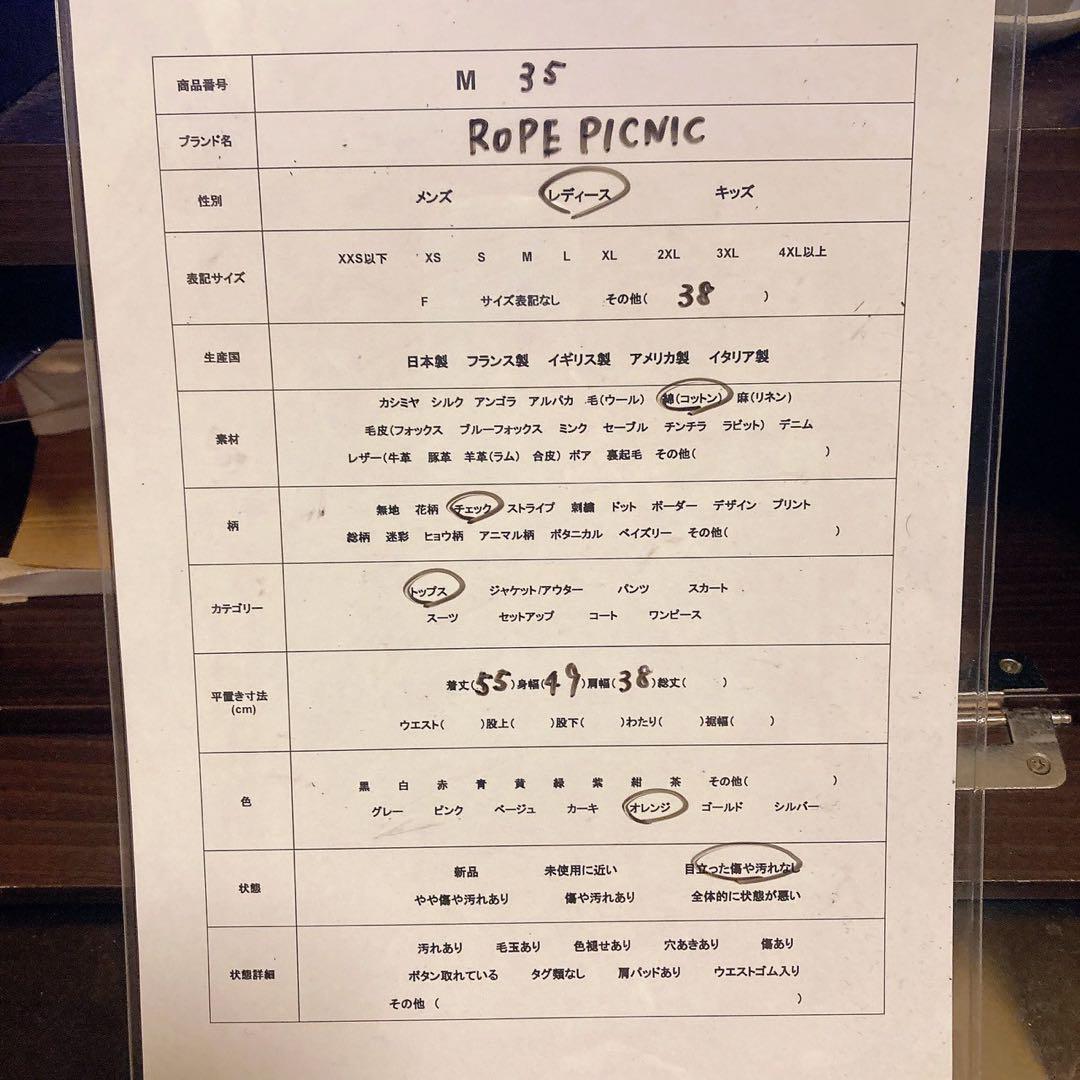 商品番号 M 35
ブランド名 ROPE PICNIC
性別 メンズ レディース キッズ
表記サイズ
XXS以下 XS S M L XL 2XL 3XL 4XL以上
F サイズ表記なし その他( 38 )
生産国 日本製 フランス製 イギリス製 アメリカ製 イタリア製
素材
カシミヤ シルク アンゴラ アルパカ 毛(ウール) 綿(コットン) 麻(リネン)
毛皮(フォックス ブルーフォックス ミンク セーブル チンチラ ラビット) デニム
レザー(牛革 豚革 羊革(ラム) 合皮) ボア 裏起毛 その他( )
柄
無地 花柄 チェック ストライプ 刺繍 ドット ボーダー デザイン プリント
総柄 迷彩 ヒョウ柄 アニマル柄 ボタニカル ペイズリー その他( )
カテゴリー
トップス ジャケット/アウター パンツ スカート
スーツ セットアップ コート ワンピース
平置き寸法
(cm)
着丈(55)身幅(49)肩幅(38)総丈( )
ウエスト( )股上( )股下( )わたり( )裾幅( )
色
黒 白 赤 青 黄 緑 紫 紺 茶 その他( )
グレー ピンク ベージュ カーキ オレンジ ゴールド シルバー
状態
新品 未使用に近い 目立った傷や汚れなし
やや傷や汚れあり 傷や汚れあり 全体的に状態が悪い
状態詳細
汚れあり 毛玉あり 色褪せあり 穴あきあり 傷あり
ボタン取れている タグ類なし 肩パッドあり ウエストゴム入り
その他 ( )